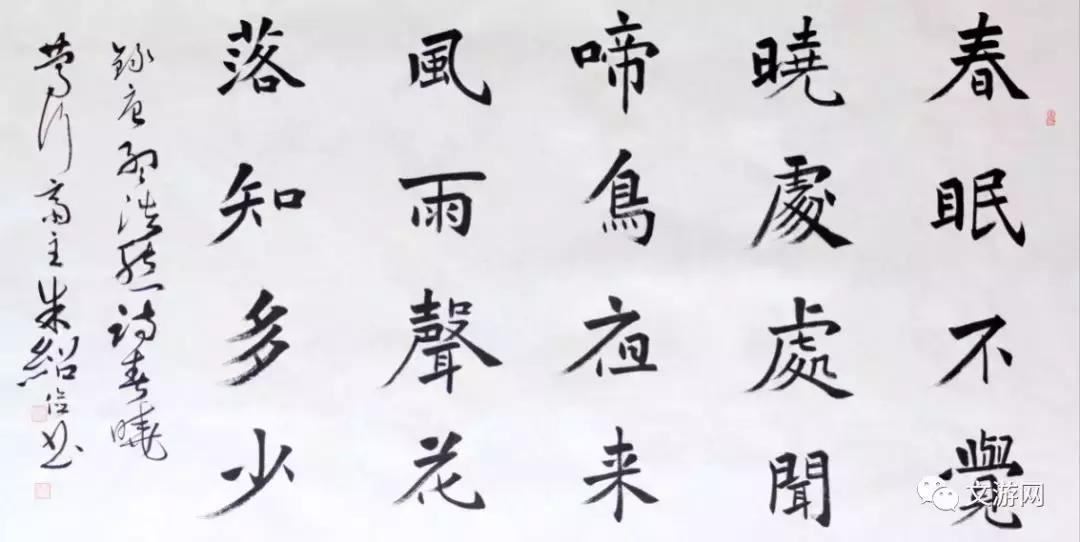 春眠不覺
曉處處聞
啼鳥夜来
風雨聲花
落知多少
錄唐孟浩然詩春曉
斋主朱紹书
文游网